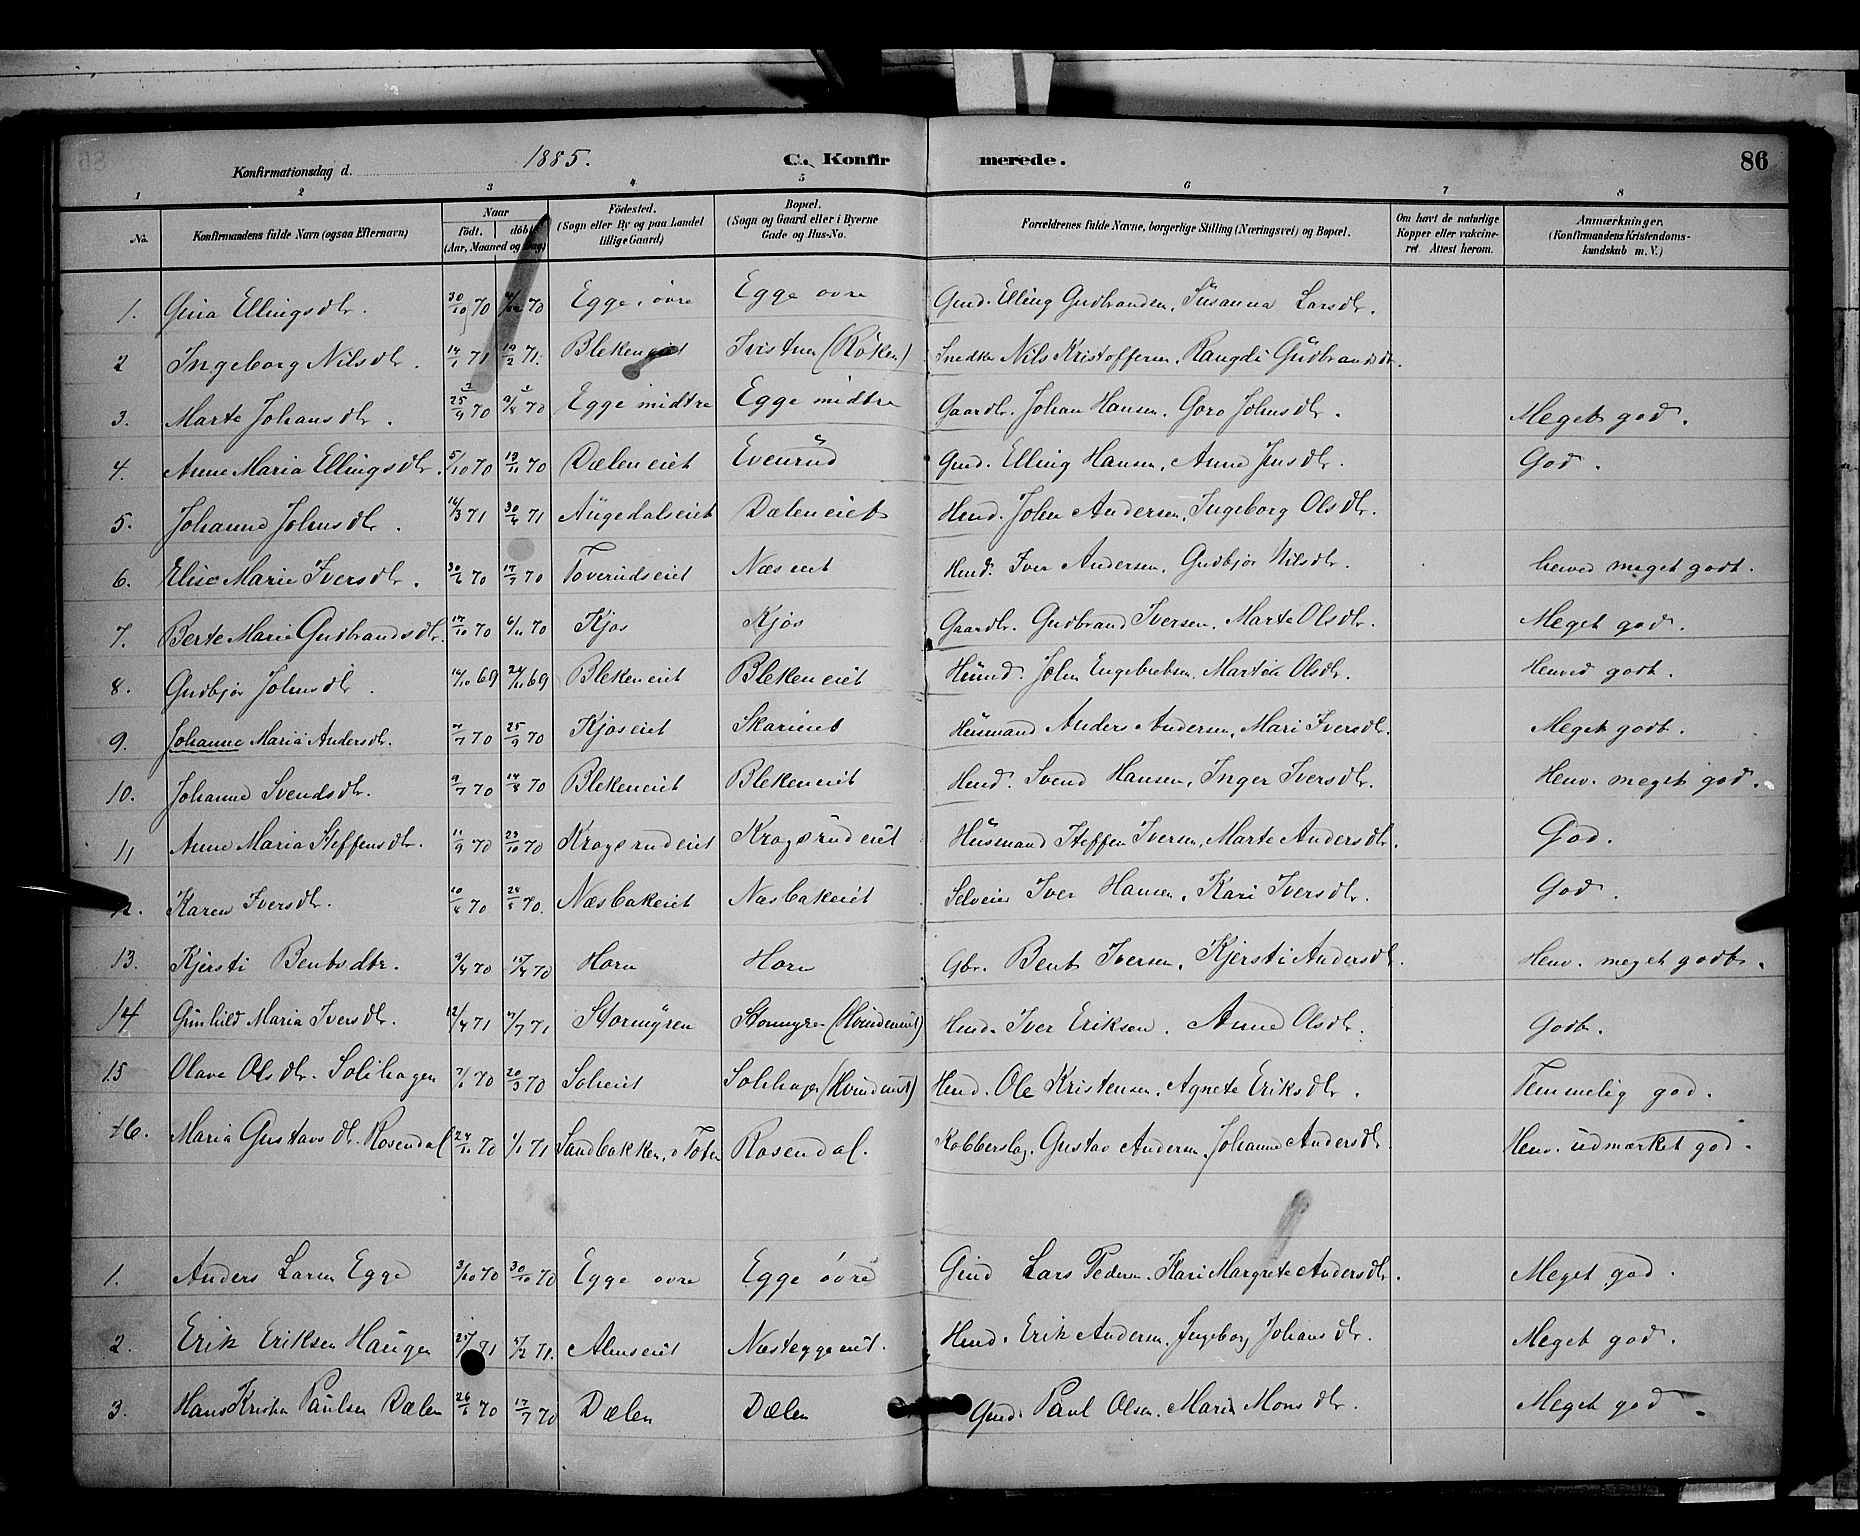 Konfirmationsdag d. 1885. C. Konfirmerede. 86
1 2 3 4 5 6 7 8
No. Konfirmandens fulde Navn (ogsaa Efternavn) Naar födt. döbt. (Aar, Maaned og Dag) Födested. (Sogn eller By og paa Landet tillige Gaard) Bopæl. (Sogn og Gaard eller i Byerne Gade og Hus-No. Forældrenes fulde Navne, borgerlige Stilling (Næringsvei) og Bopæl. Om havt de naturlige Kopper eller vakcineret. Attest herom. Anmærkninger. (Konfirmandens Kristendomskundskab m. V.)
1. Gina Ellingsdtr. 30/10 70 70 Egge övre Egge ovre Gmd. Elling Gudbrandsen, Susanna Larsdtr.
2 Ingeborg Nilsdtr. 14/1 71 19/2 71. Blekeneiet (Röken) Snedker Nils Kristoffersen. Rangdi Gudbrandsdtr.
3. Marte Johansdtr. 25/9 70 70 Egge midtre Egge midtre Gaardbr. Johan Hansen, Goro Johnsdtr. Meget god.
4. Anne Maria Ellingsdtr. 5/10 70 13/11 70 Dæleneiet Evenrud Gmd. Elling Hansen, Anne Jensdtr. God.
5. Johanne Johnsdtr. 16/3 71 30/4 71 Augedalseiet Dæleneiet Hmd. John Andersen, Ingeborg Olsdtr.
6. Elise Marie Iversdtr. 30/6 70 17/7 70 Toverudseiet Næseiet Hmd. Iver Andersen, Gudbjör Nilsdtr. henved meget godt.
7. Berte Marie Gudbrandsdtr. 17/10 70 6/11 70 Kjos Kjos Gaardbr. Gudbrand Iversen, Marte Olsdtr. Meget god.
8. Gudbjör Johnsdtr. 14/10 69 24/10 69 Blekeneiet Blekeneiet Husmd. John Engebretsen, Martöe Olsdtr. Henved godt.
9. Johanne Maria Andersdtr. 70 25/9 70 Kjoseiet Skarieiet Husmand Anders Andersen, Mari Iversdtr. Meget godt.
10. Johanne Svendsdtr. 9/7 70 14/8 70 Blekeneiet Blekeneiet Hmd. Svend Hansen, Inger Iversdtr. Henv. meget god.
11 Anne Maria Steffensdtr. 11/9 70 23/10 70 Kragsrudeiet Kragsrudeiet Husmand Steffen Iversen, Marte Andersdtr. God.
12. Karen Iversdtr. 10/6 70 70. Næsbakeiet Næsbakeiet Selveier Iver Hansen, Kari Iversdtr. God.
13. Kjersti Bentsdtr. 9/4 70 70 Horn Horn Gbr. Bent Iversen, Kjersti Andersdtr. Henv. meget godt.
14 Gunhild Maria Iversdtr. 12/4 71 71 Stormyren Stormyren (Hvindeneiet) Hmd. Iver Eriksen. Anne Olsdtr. Godt.
15 Olave Olsdtr. Solihagen 70 20/3 70 Soheiet Solihagen (Hvindeneiet) Hmd. Ole Kristensen, Agnete Eriksdtr. Temmelig god.
16. Maria Gustavsdtr. Rosendal 24/11 70 1/1 71 Sandbakken, Ø Toten Rosendal. Kobberslag. Gustav Andersen, Johanne Andersdtr Henv. udmærket god.
1. Anders Larsen Egge 3/10 70 30/10 70 Egge ovre Egge övre Gmd Lars Pedersen. Kari Margrete Andersdtr. Meget god.
2. Erik Eriksen Haugen 71 71. Almseiet Næsteggeeiet. Hmd. Erik Andersen, Ingeborg Johansdtr. Meget god.
3. Hans Kristian Paulsen Dælen 26/6 70 17/7 70 Dælen Dælen Gmd. Paul Olsen. Mari Monsdtr. Meget god.